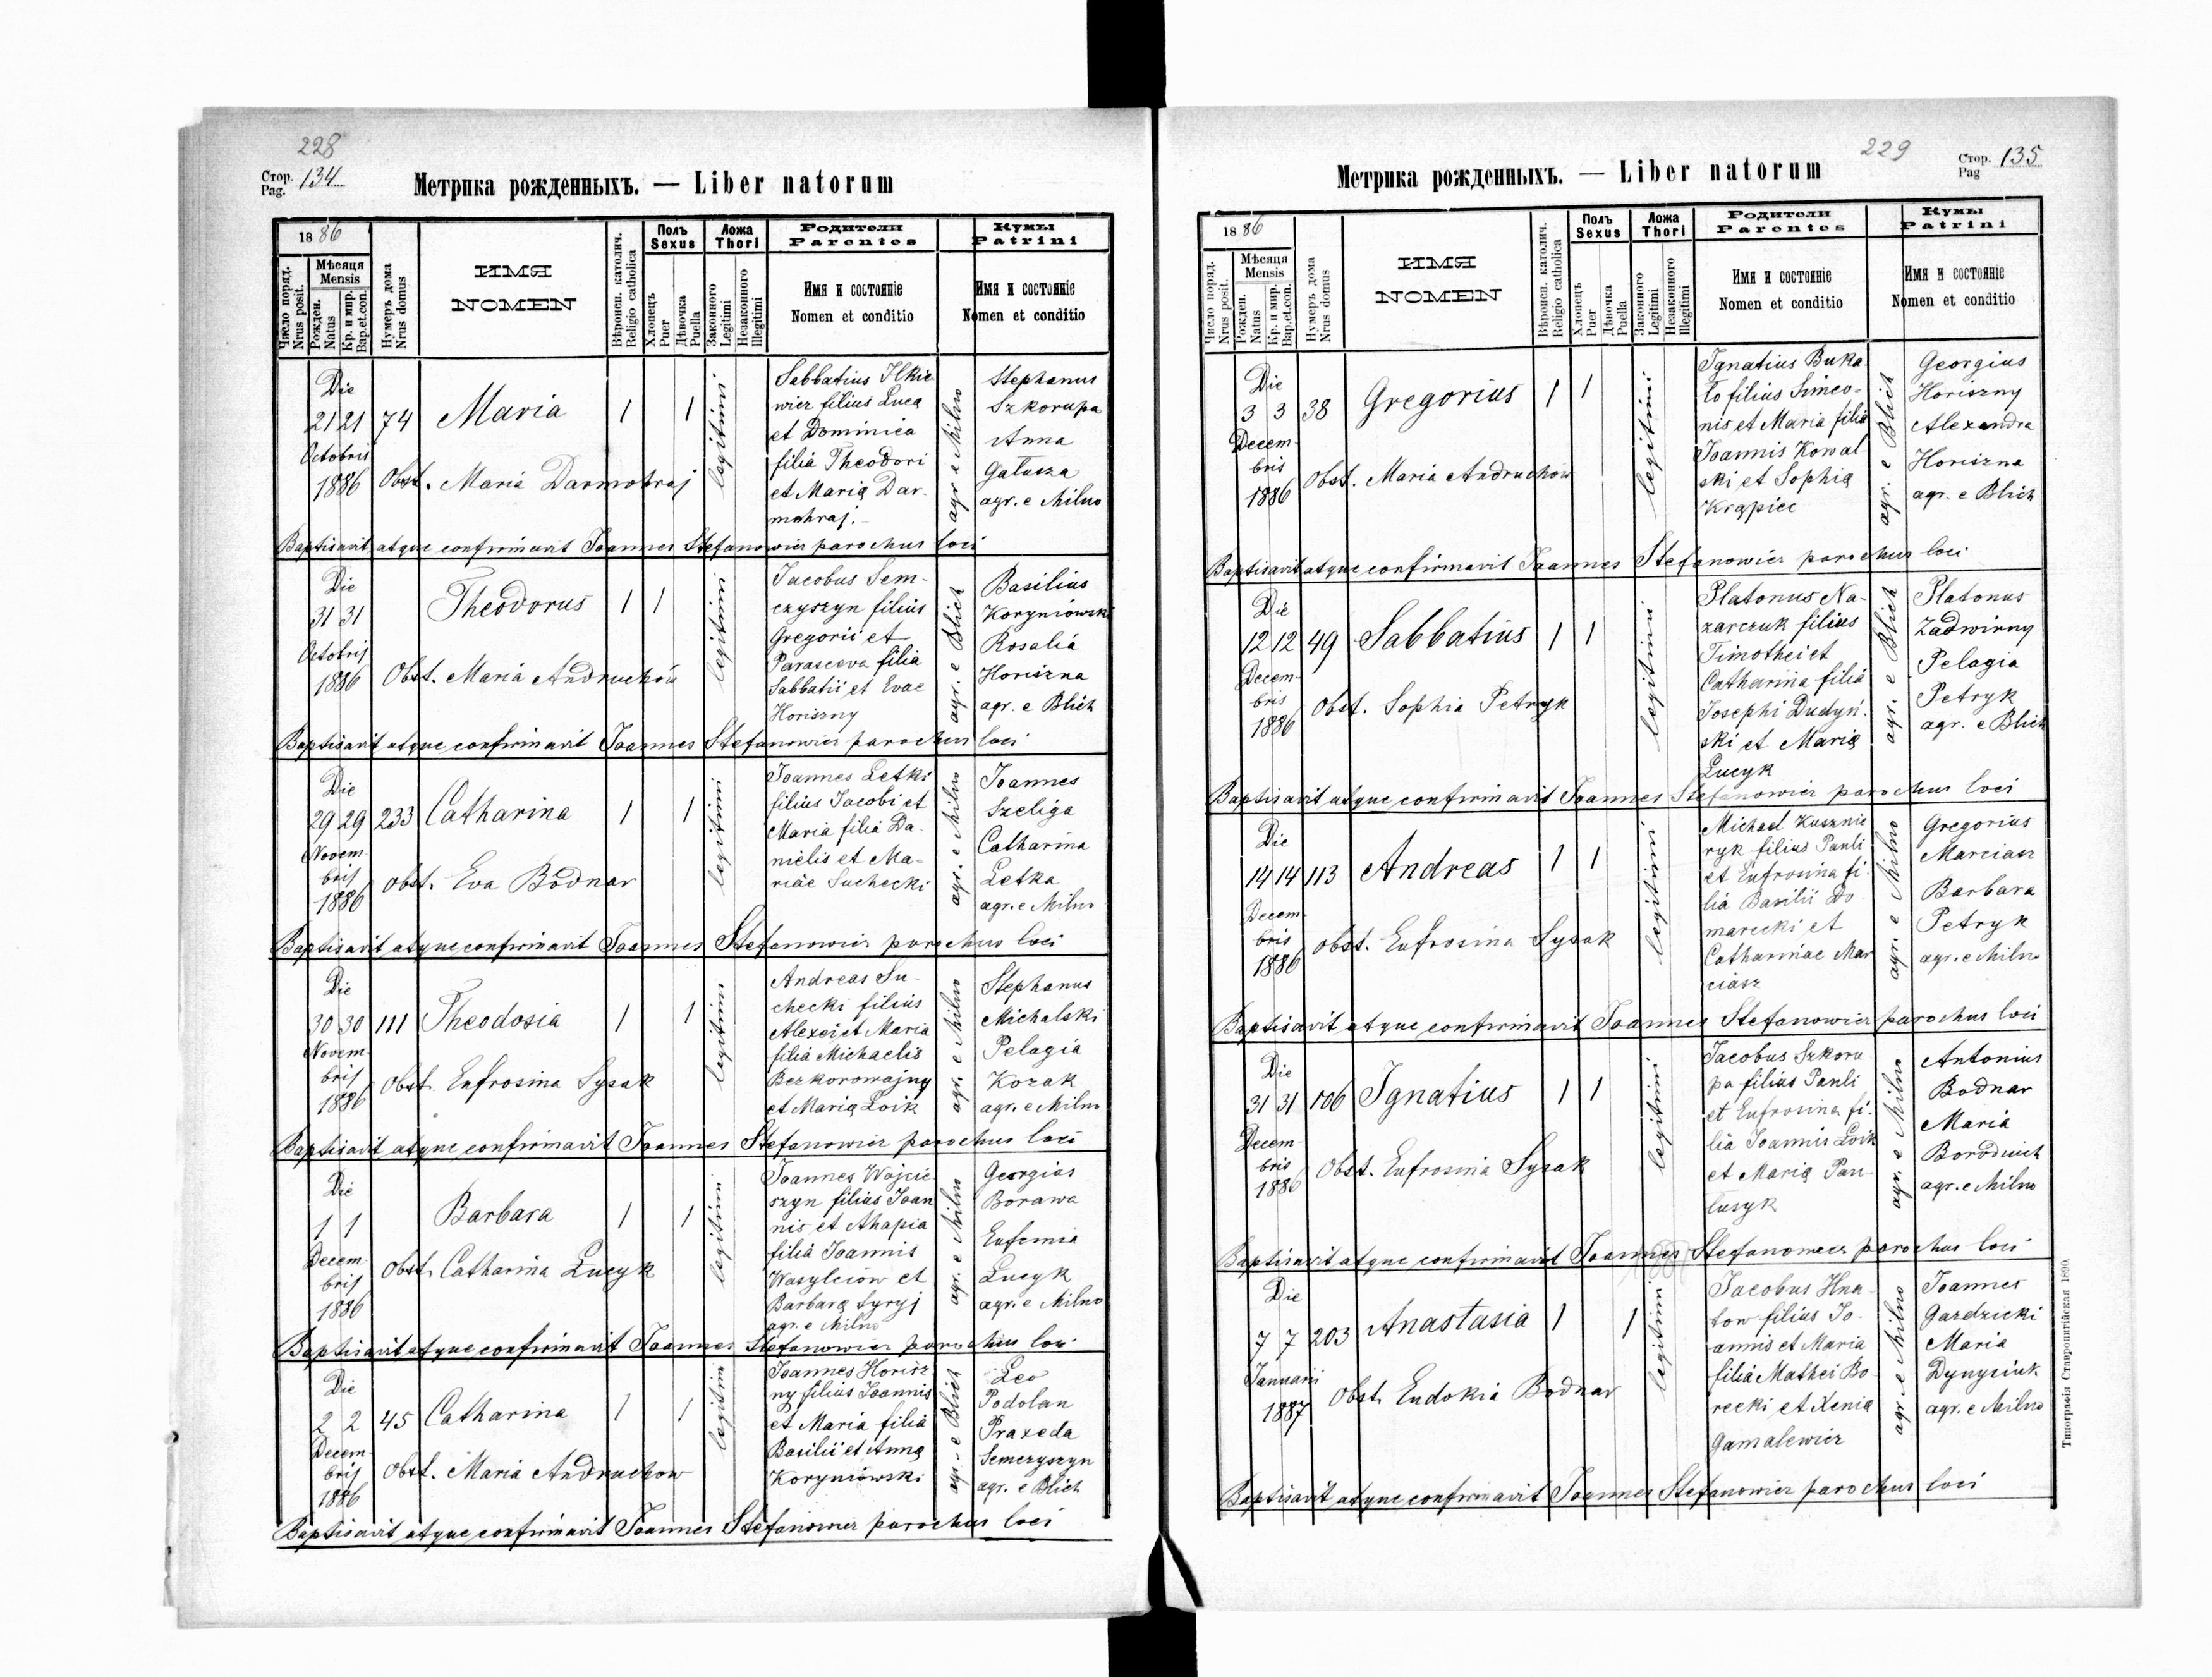 228
Стор. Pag. 134
Метрика рожденныхъ. — Liber natorum
1886
Число поряд. Nrus posit.
Мѣсяця Mensis
Рожден. Natus
Кр. и мир. Bap.et.con.
Нумеръ дома Nrus domus
ИМЯ
NOMEN
Вѣроисп. католич. Religio catholica
Полъ Sexus
Хлопецъ Puer
Дѣвочка Puella
Ложа Thori
Законного Legitimi
Незаконного Illegitimi
Родители
Parentes
Имя и состояніе
Nomen et conditio
Кумы
Patrini
Имя и состояніе
Nomen et conditio
Die
21 21 74 Maria 1 1 legitimi
Octobris
1886 Obst. Maria Darmohraj
Sabbatius Ilkie
wicz filius Luca
et Dominica
filia Theodori
et Maria Dar-
mohraj.
agr e Milno
Stephanus
Szkorupa
Anna
Gałusza
agr. e Milno
Baptisavit atque confirmavit Joannes Stefanowicz parochus loci
Die
31 31 Theodorus 1 1 legitimi
Octobris
1886 Obst. Maria Andruchów
Jacobus Sem-
czyszyn filius
Gregorii et
Parasceva filia
Sabbatii et Evae
Horiszny
agr. e Blich
Basilius
Koryniowski
Rosalia
Horiszna
agr. e Blich
Baptisavit atque confirmavit Joannes Stefanowicz parochus loci
Die
29 29 233 Catharina 1 1 legitimi
Novem-
bris
1886 obst. Eva Bodnar
Joannes Letki
filius Jacobi et
Maria filia Da-
nielis et Ma-
riae Suchecki
agr. e Milno
Joannes
Szeliga
Catharina
Letka
agr. e Milno
Baptisavit atque confirmavit Joannes Stefanowicz parochus loci
Die
30 30 111 Theodosia 1 1 legitimi
Novem-
bris
1886 Obst. Eufrosina Sysak
Andreas Su-
checki filius
Alexei et Maria
filia Michaelis
Bezkorowajny
et Maria Loik
agr. e Milno
Stephanus
Michalski
Pelagia
Kozak
agr. e Milno
Baptisavit atque confirmavit Joannes Stefanowicz parochus loci
Die
1 1 Barbara 1 1 legitimi
Decem-
bris
1886
Obst. Catharina Lucyk
Joannes Wojcie
szyn filius Joan
nis et Ahapia
filia Joannis
Wasylciow et
Barbara Syryj
agr. e Milno
agr. e Milno
Georgius
Borawa
Eufemia
Lucyk
agr. e Milno
Baptisavit atque confirmavit Joannes Stefanowicz parochus loci
Die
2 2 45 Catharina 1 1 legitim
Decem-
bris
1886
Obst. Maria Andruchow
Joannes Horisz
ny filius Joannis
et Maria filia
Basilii et Anna
Koryniowski
agr. e Blich
Leo
Podolan
Praxeda
Semczyszyn
agr. e Blich
Baptisavit atque confirmavit Joannes Stefanowicz parochus loci
229
Стор. Pag 135
Метрика рожденныхъ. — Liber natorum
1886
Число поряд. Nrus posit.
Мѣсяця Mensis
Рожден. Natus
Кр. и мир. Bap.et.con.
Нумеръ дома Nrus domus
ИМЯ
NOMEN
Вѣроисп. католич. Religio catholica
Полъ Sexus
Хлопецъ Puer
Дѣвочка Puella
Ложа Thori
Законного Legitimi
Незаконного Illegitimi
Родители
Parentes
Имя и состояніе
Nomen et conditio
Кумы
Patrini
Имя и состояніе
Nomen et conditio
Die
3 3 38 Gregorius 1 1 legitimi
Decem-
bris
1886
Obst. Maria Andruchów
Ignatius Buka
ło filius Simeo-
nis et Maria filia
Joannis Kowal
ski et Sophia
Krąpiec
agr. e Blich
Georgius
Horiszny
Alexandra
Horiszna
agr. e Blich
Baptisavit atque confirmavit Joannes Stefanowicz parochus loci
Die
12 12 49 Sabbatius 1 1 legitimi
Decem-
bris
1886
Obst. Sophia Petryk
Platonus Na-
zarczuk filius
Timothei et
Catharina filia
Josephi Dudyń-
ski et Maria
Lucyk
agr. e Blich
Platonus
Zadwirny
Pelagia
Petryk
agr. e Blich
Baptisavit atque confirmavit Joannes Stefanowicz parochus loci
Die
14 14 113 Andreas 1 1 legitimi
Decem-
bris
1886
obst. Eufrosina Sysak
Michael Kusznie
ryk filius Pauli
et Eufrosina fi-
lia Basilii Do
marecki et
Catharinae Mar
ciasz
agr. e Milno
Gregorius
Marciasz
Barbara
Petryk
agr. e Milno
Baptisavit atque confirmavit Joannes Stefanowicz parochus loci
Die
31 31 106 Ignatius 1 1 legitimi
Decem-
bris
1886
Obst. Eufrosina Sysak
Jacobus Szkoru
pa filius Pauli
et Eufrosina fi-
lia Joannis Loik
et Maria Pau-
lusyk
agr. e Milno
Antonius
Bodnar
Maria
Borodiuch
agr. e Milno
Baptisavit atque confirmavit Joannes Stefanowicz parochus loci
Die
7 7 203 Anastasia 1 1 legitimi
Januarii
1887
Obst. Eudokia Bodnar
Jacobus Hna
tow filius Jo-
annis et Maria
filia Mathei Bo-
recki et Xenia
Gamalewicz
agr e Milno
Joannes
Gazdzicki
Maria
Dynysiuk
agr. e Milno
Baptisavit atque confirmavit Joannes Stefanowicz parochus loci
Типографія Ставропигійская 1890.